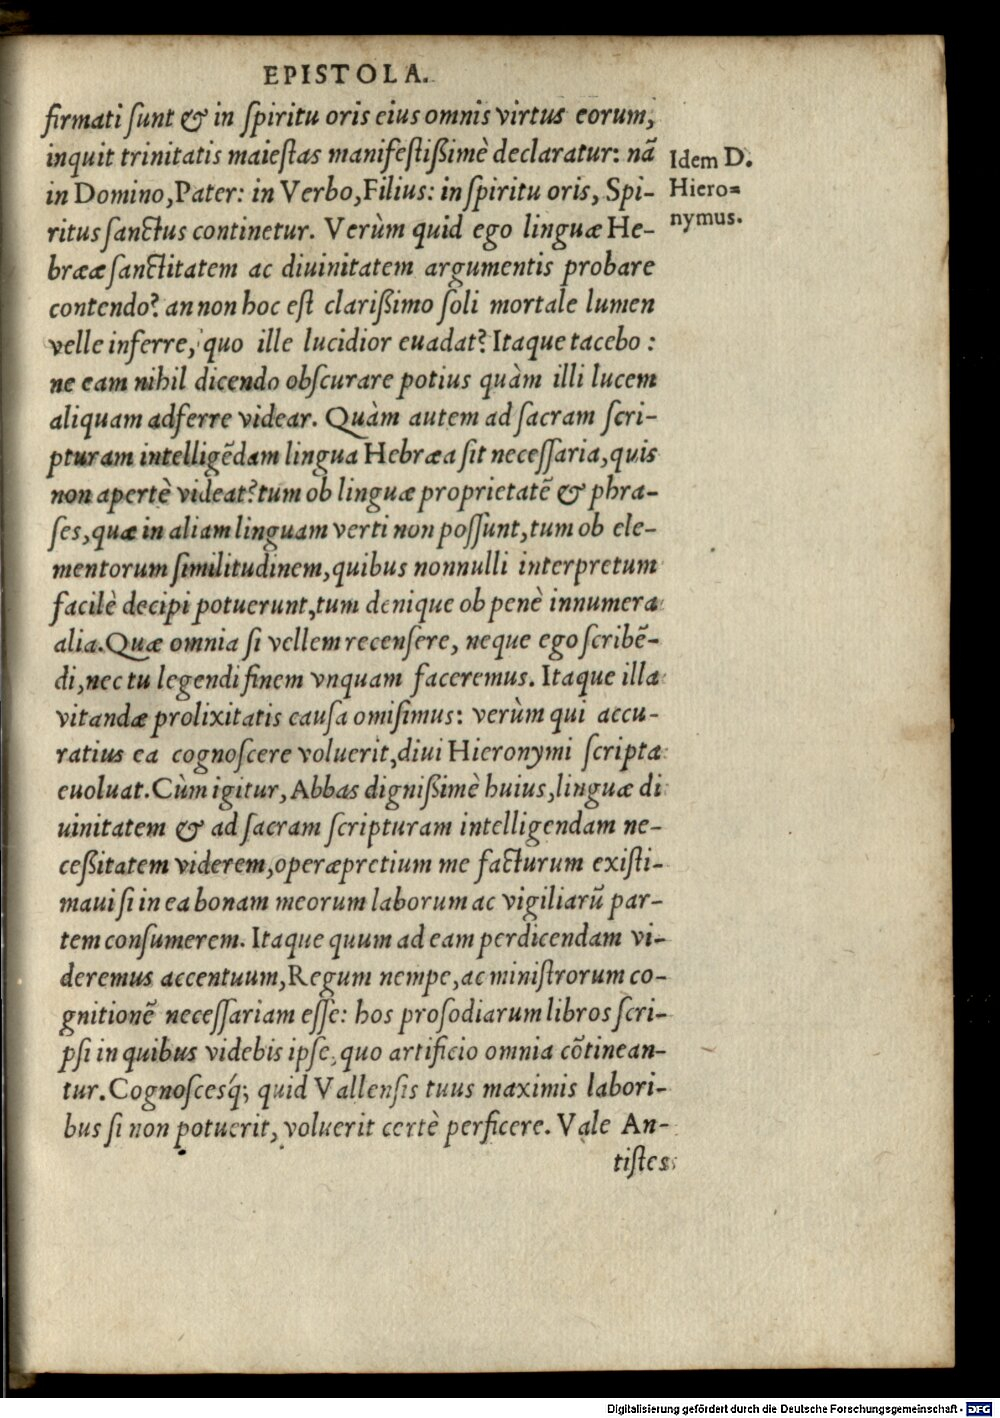 EPISTOLA.
firmati sunt & in spiritu oris eius omnis virtus eorum,
inquit trinitatis maiestas manifestißimè declaratur: nã
in Domino, Pater: in Verbo, Filius: in spiritu oris, Spi-
ritus sanctus continetur. Verùm quid ego linguæ He-
brææ sanctitatem ac diuinitatem argumentis probare
contendo? an non hoc est clarißimo soli mortale lumen
velle inferre, quo ille lucidior euadat? Itaque tacebo :
ne eam nihil dicendo obscurare potius quàm illi lucem
aliquam adferre videar. Quàm autem ad sacram scri-
pturam intelligẽdam lingua Hebræa sit necessaria, quis
non apertè videat? tum ob linguæ proprietatẽ & phra-
ses, quæ in aliam linguam verti non possunt, tum ob ele-
mentorum similitudinem, quibus nonnulli interpretum
facilè decipi potuerunt, tum denique ob penè innumera
alia. Quæ omnia si vellem recensere, neque ego scribẽ-
di, nec tu legendi finem vnquam faceremus. Itaque illa
vitandæ prolixitatis causa omisimus: verùm qui accu-
ratius ea cognoscere voluerit, diui Hieronymi scripta
euoluat. Cùm igitur, Abbas dignißimè huius, linguæ di
uinitatem & ad sacram scripturam intelligendam ne-
ceßitatem viderem, operæpretium me facturum existi-
maui si in ea bonam meorum laborum ac vigiliarũ par-
tem consumerem. Itaque quum ad eam perdicendam vi-
deremus accentuum, Regum nempe, ac ministrorum co-
gnitionẽ necessariam esse: hos prosodiarum libros scri-
psi in quibus videbis ipse, quo artificio omnia cõtinean-
tur. Cognoscesq́; quid Vallensis tuus maximis labori-
bus si non potuerit, voluerit certè perficere. Vale An-
tistes
Idem D.
Hiero=
nymus.
Digitalisierung gefördert durch die Deutsche Forschungsgemeinschaft - DFG